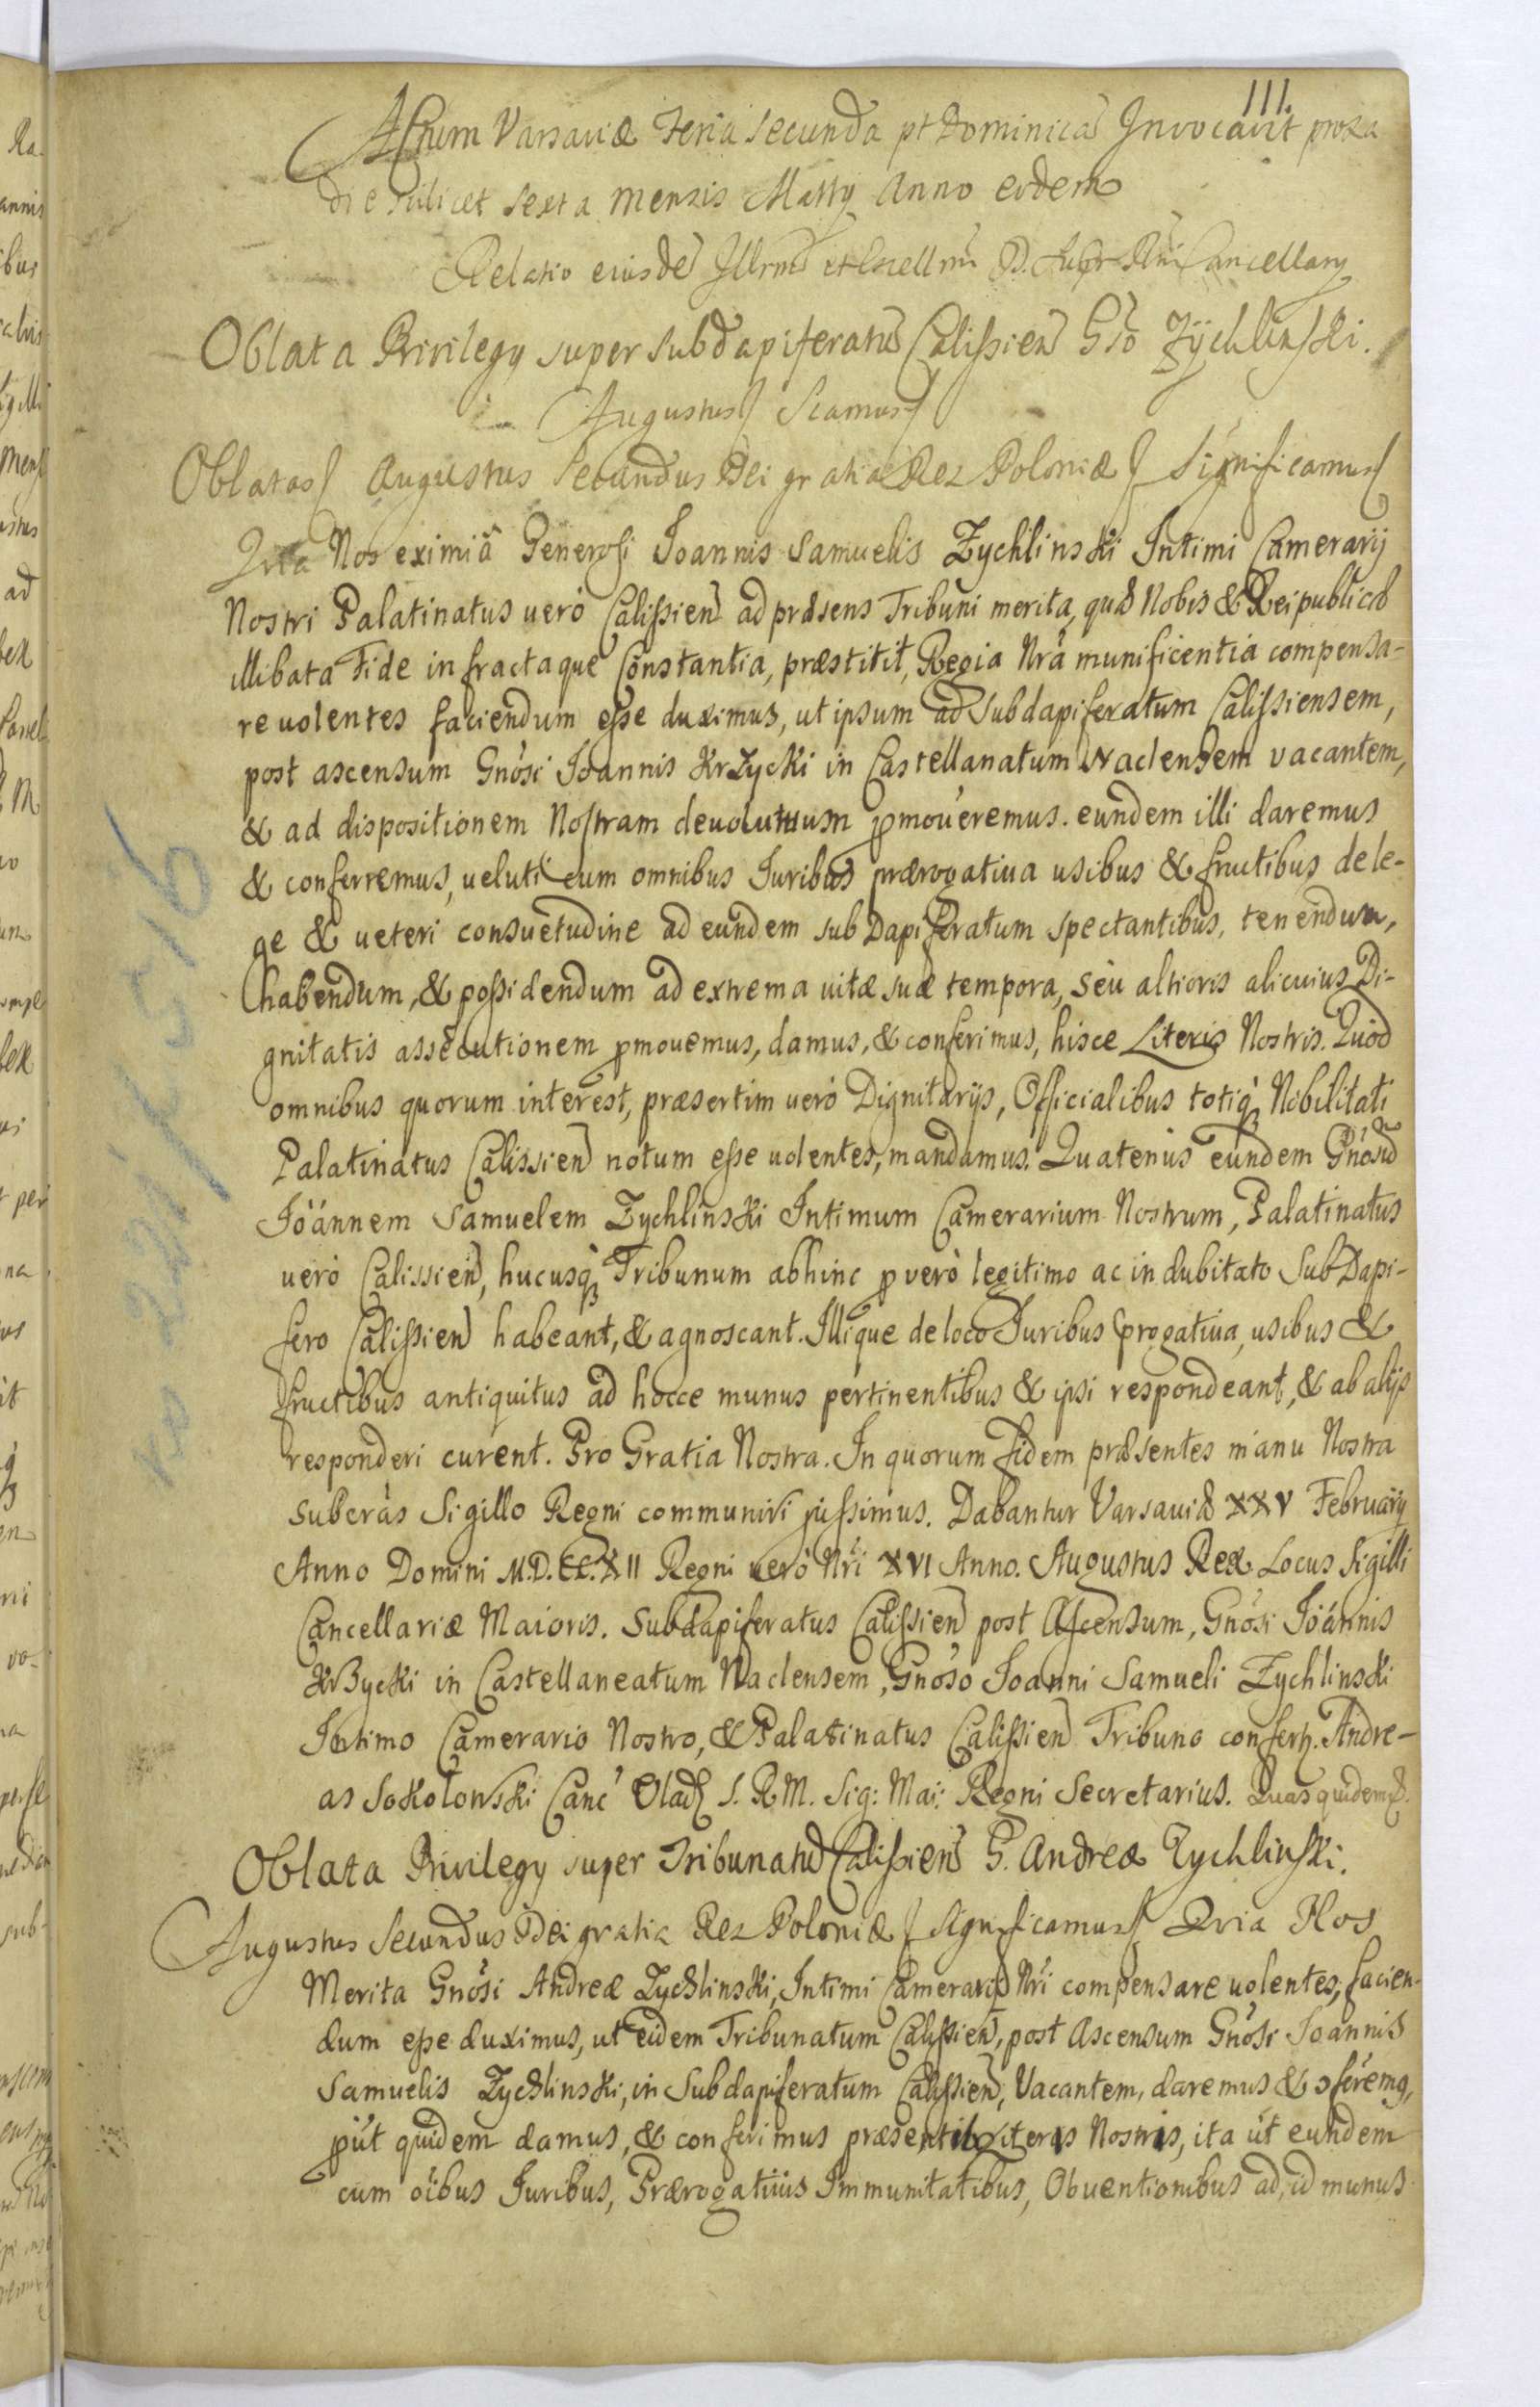 111.
Actum Varsaviæ Feria Secunda pt Dominicã Invocavit proxa
die scilicet Sexta Mensis Martij Anno eodem
Relatio eiusdẽ Illrmi et Excellmi D. Supr Rñi Cancellarij
Oblata Privilegy super subdapiferatũ Calissien Gso Zÿchlinski.
Augustus Scamus
Oblatas Augustus Secundus Dei gratia Rex Poloniæ Significamus
Quia Nos eximiâ Generosi Joannis Samuelis Zychlinski Intimi Camerarij
Nostri Palatinatus verò Calissien ad præsens Tribuni merita, quæ Nobis & Reipublicæ
illibata Fide infractaque Constantia, præstitit, Regia Nrâ munificentia compensa-
re volentes faciendum esse duximus, ut ipsum ad Subdapiferatum Calissiensem,
post ascensum Gnôsi Joannis Krzycki in Castellanatum Naclensem vacantem,
& ad dispositionem Nostram devolutum pmoveremus. eundem illi daremus
& conferremus, veluti cum omnibus Juribus prærogativa usibus & fructibus de le-
ge & veteri consuetudine ad eundem subDapiferatum spectantibus, tenendum,
habendum, & possidendum ad extrema vitæ suæ tempora, seu altioris alicuius Di-
gnitatis assecutionem pmovemus, damus, & conferimus, hisce Literis Nostris. Quod
omnibus quorum interest, præsertim verò Dignitarijs, Officialibus totiq Nobilitati
Palatinatus Calissien notum esse volentes, mandamus. Quatenus eundem Gnôsũ
Joánnem Samuelem Zychlinski Intimum Camerarium Nostrum, Palatinatus
verò Calissien, hucusq Tribunum abhinc p verò legitimo ac indubitato SubDapi-
fero Calissien habeant, & agnoscant. Illique de loco Juribus progativa, usibus &
fructibus antiquitus ad hocce munus pertinentibus & ipsi respondeant, & ab alijs
responderi curent. Pro Gratia Nostra. In quorum fidem præsentes manu Nostra
subcràs Sigillo Regni communiri jussimus. Dabantur Varsaviæ XXV Februarij
Anno Domini M.D.CC.XII Regni verò Nři XVI Anno. Augustus Rex Locus Sigilli
Cancellariæ Maioris. Subdapiferatus Calissien post Ascensum, Gnôsi Joánnis
Krzycki in Castellaneatum Naclensem, Gnôso Joanni Samueli Zychlinski
Intimo Camerario Nostro, & Palatinatus Calissien Tribuno confertr. Andre-
as Sokolowski Canc S. R M. Sig: Mai: Regni Secretarius. Quas quidem
Oblata Privilegy super Tribunatũ Calissien G. Andreæ Zychlinski.
Augustus Secundus Dei gratia Rex Poloniæ Significamus Qvia Nos
Merita Gnôsi Andreæ Zychlinski, Intimi Camerarij Nři compensare volentes, facien-
dum esse duximus, ut eidem Tribunatum Calissien, post Ascensum Gnôsi Joannis
Samuelis Zychlinski, in Subdapiferatum Calissien, Vacantem, daremus & ɔferemg,
put quidem damus, & conferimus præsentib Literis Nostris, ita út eundem
cum oĩbus Juribus, Prærogativis Immunitatibus, Obventionibus ad id munus